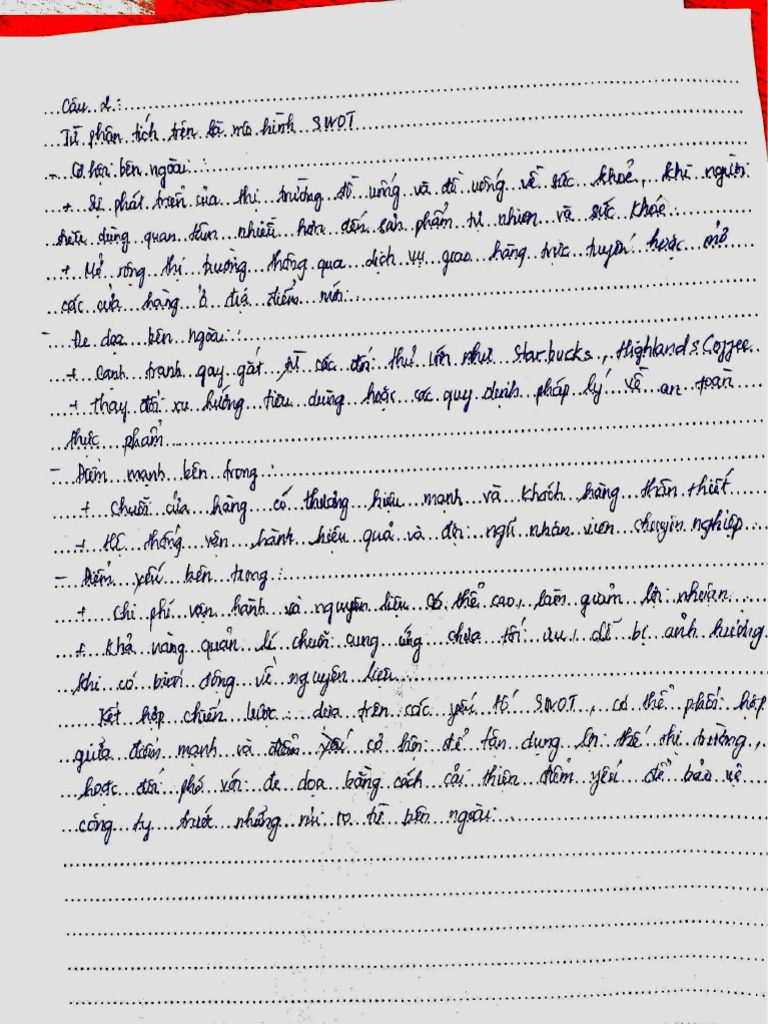 Câu 2:
Từ phân tích trên là mô hình SWOT
- Cơ hội bên ngoài:
+ Sự phát triển của thị trường đồ uống và đồ uống về sức khoẻ, khi người
tiêu dùng quan tâm nhiều hơn đến sản phẩm tự nhiên và sức khoẻ
+ Mở rộng thị trường thông qua dịch vụ giao hàng trực tuyến hoặc mở
các cửa hàng ở địa điểm mới.
- Đe dọa bên ngoài:
+ Cạnh tranh gay gắt từ các đối thủ lớn như Starbucks, Highlands Coffee
+ thay đổi xu hướng tiêu dùng hoặc các quy định pháp lý về an toàn
thực phẩm
- Điểm mạnh bên trong:
+ chuỗi cửa hàng có thương hiệu mạnh và khách hàng thân thiết
+ Hệ thống vận hành hiệu quả và đội ngũ nhân viên chuyên nghiệp
- Điểm yếu bên trong:
+ chi phí vận hành và nguyên liệu có thể cao, làm giảm lợi nhuận
+ Khả năng quản lí chuỗi cung ứng chưa tối ưu, dễ bị ảnh hưởng
khi có biến động về nguyên liệu
Kết hợp chiến lược: dựa trên các yếu tố SWOT, có thể phối hợp
giữa điểm mạnh và điểm yếu cơ hội để tận dụng lợi thế thị trường,
hoặc đối phó với đe dọa bằng cách cải thiện điểm yếu để bảo vệ
công ty trước những rủi ro từ bên ngoài.